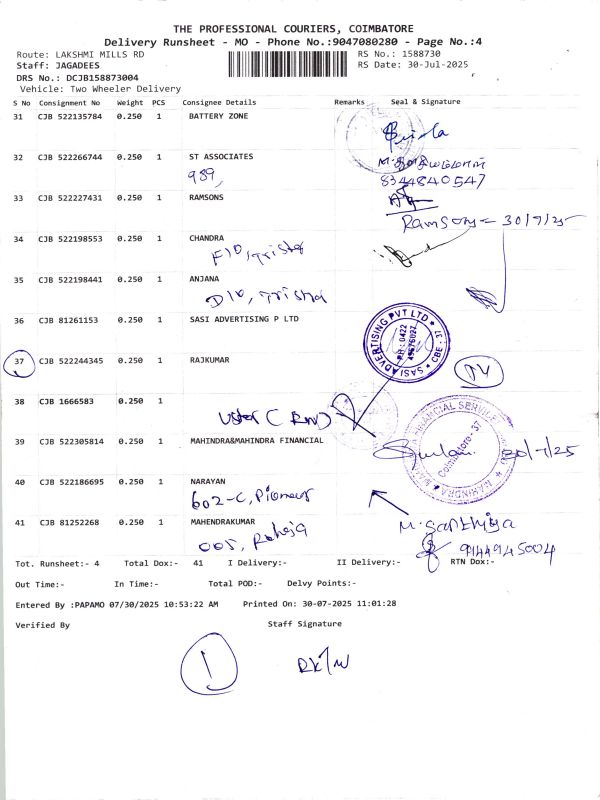 THE PROFESSIONAL COURIERS, COIMBATORE
Delivery Runsheet - MO - Phone No.:9047080280 - Page No.:4
Route: LAKSHMI MILLS RD RS No.: 1588730
Staff: JAGADEES RS Date: 30-Jul-2025
DRS No.: DCJB158873004
Vehicle: Two Wheeler Delivery
S No Consignment No Weight PCS Consignee Details Remarks Seal & Signature
31 CJB 522135784 0.250 1 BATTERY ZONE
32 CJB 522266744 0.250 1 ST ASSOCIATES
989, 8344840547
33 CJB 522227431 0.250 1 RAMSONS
Ramsons 30/7/25
34 CJB 522198553 0.250 1 CHANDRA
F10, Trisha
35 CJB 522198441 0.250 1 ANJANA
D10, Trisha
36 CJB 81261153 0.250 1 SASI ADVERTISING P LTD
SASI ADVERTISING PVT LTD * CBE - 37 *
PH : 0422
37 CJB 522244345 0.250 1 RAJKUMAR
38 CJB 1666583 0.250 1
39 CJB 522305814 0.250 1 MAHINDRA&MAHINDRA FINANCIAL
FINANCIAL SERVICES
Coimbatore - 37
30/7/25
40 CJB 522186695 0.250 1 NARAYAN
602-C, Pioneer
41 CJB 81252268 0.250 1 MAHENDRAKUMAR
005, Raheja
M. Santhiya
9144945004
Tot. Runsheet:- 4 Total Dox:- 41 I Delivery:- II Delivery:- RTN Dox:-
Out Time:- In Time:- Total POD:- Delvy Points:-
Entered By :PAPAMO 07/30/2025 10:53:22 AM Printed On: 30-07-2025 11:01:28
Verified By Staff Signature
1